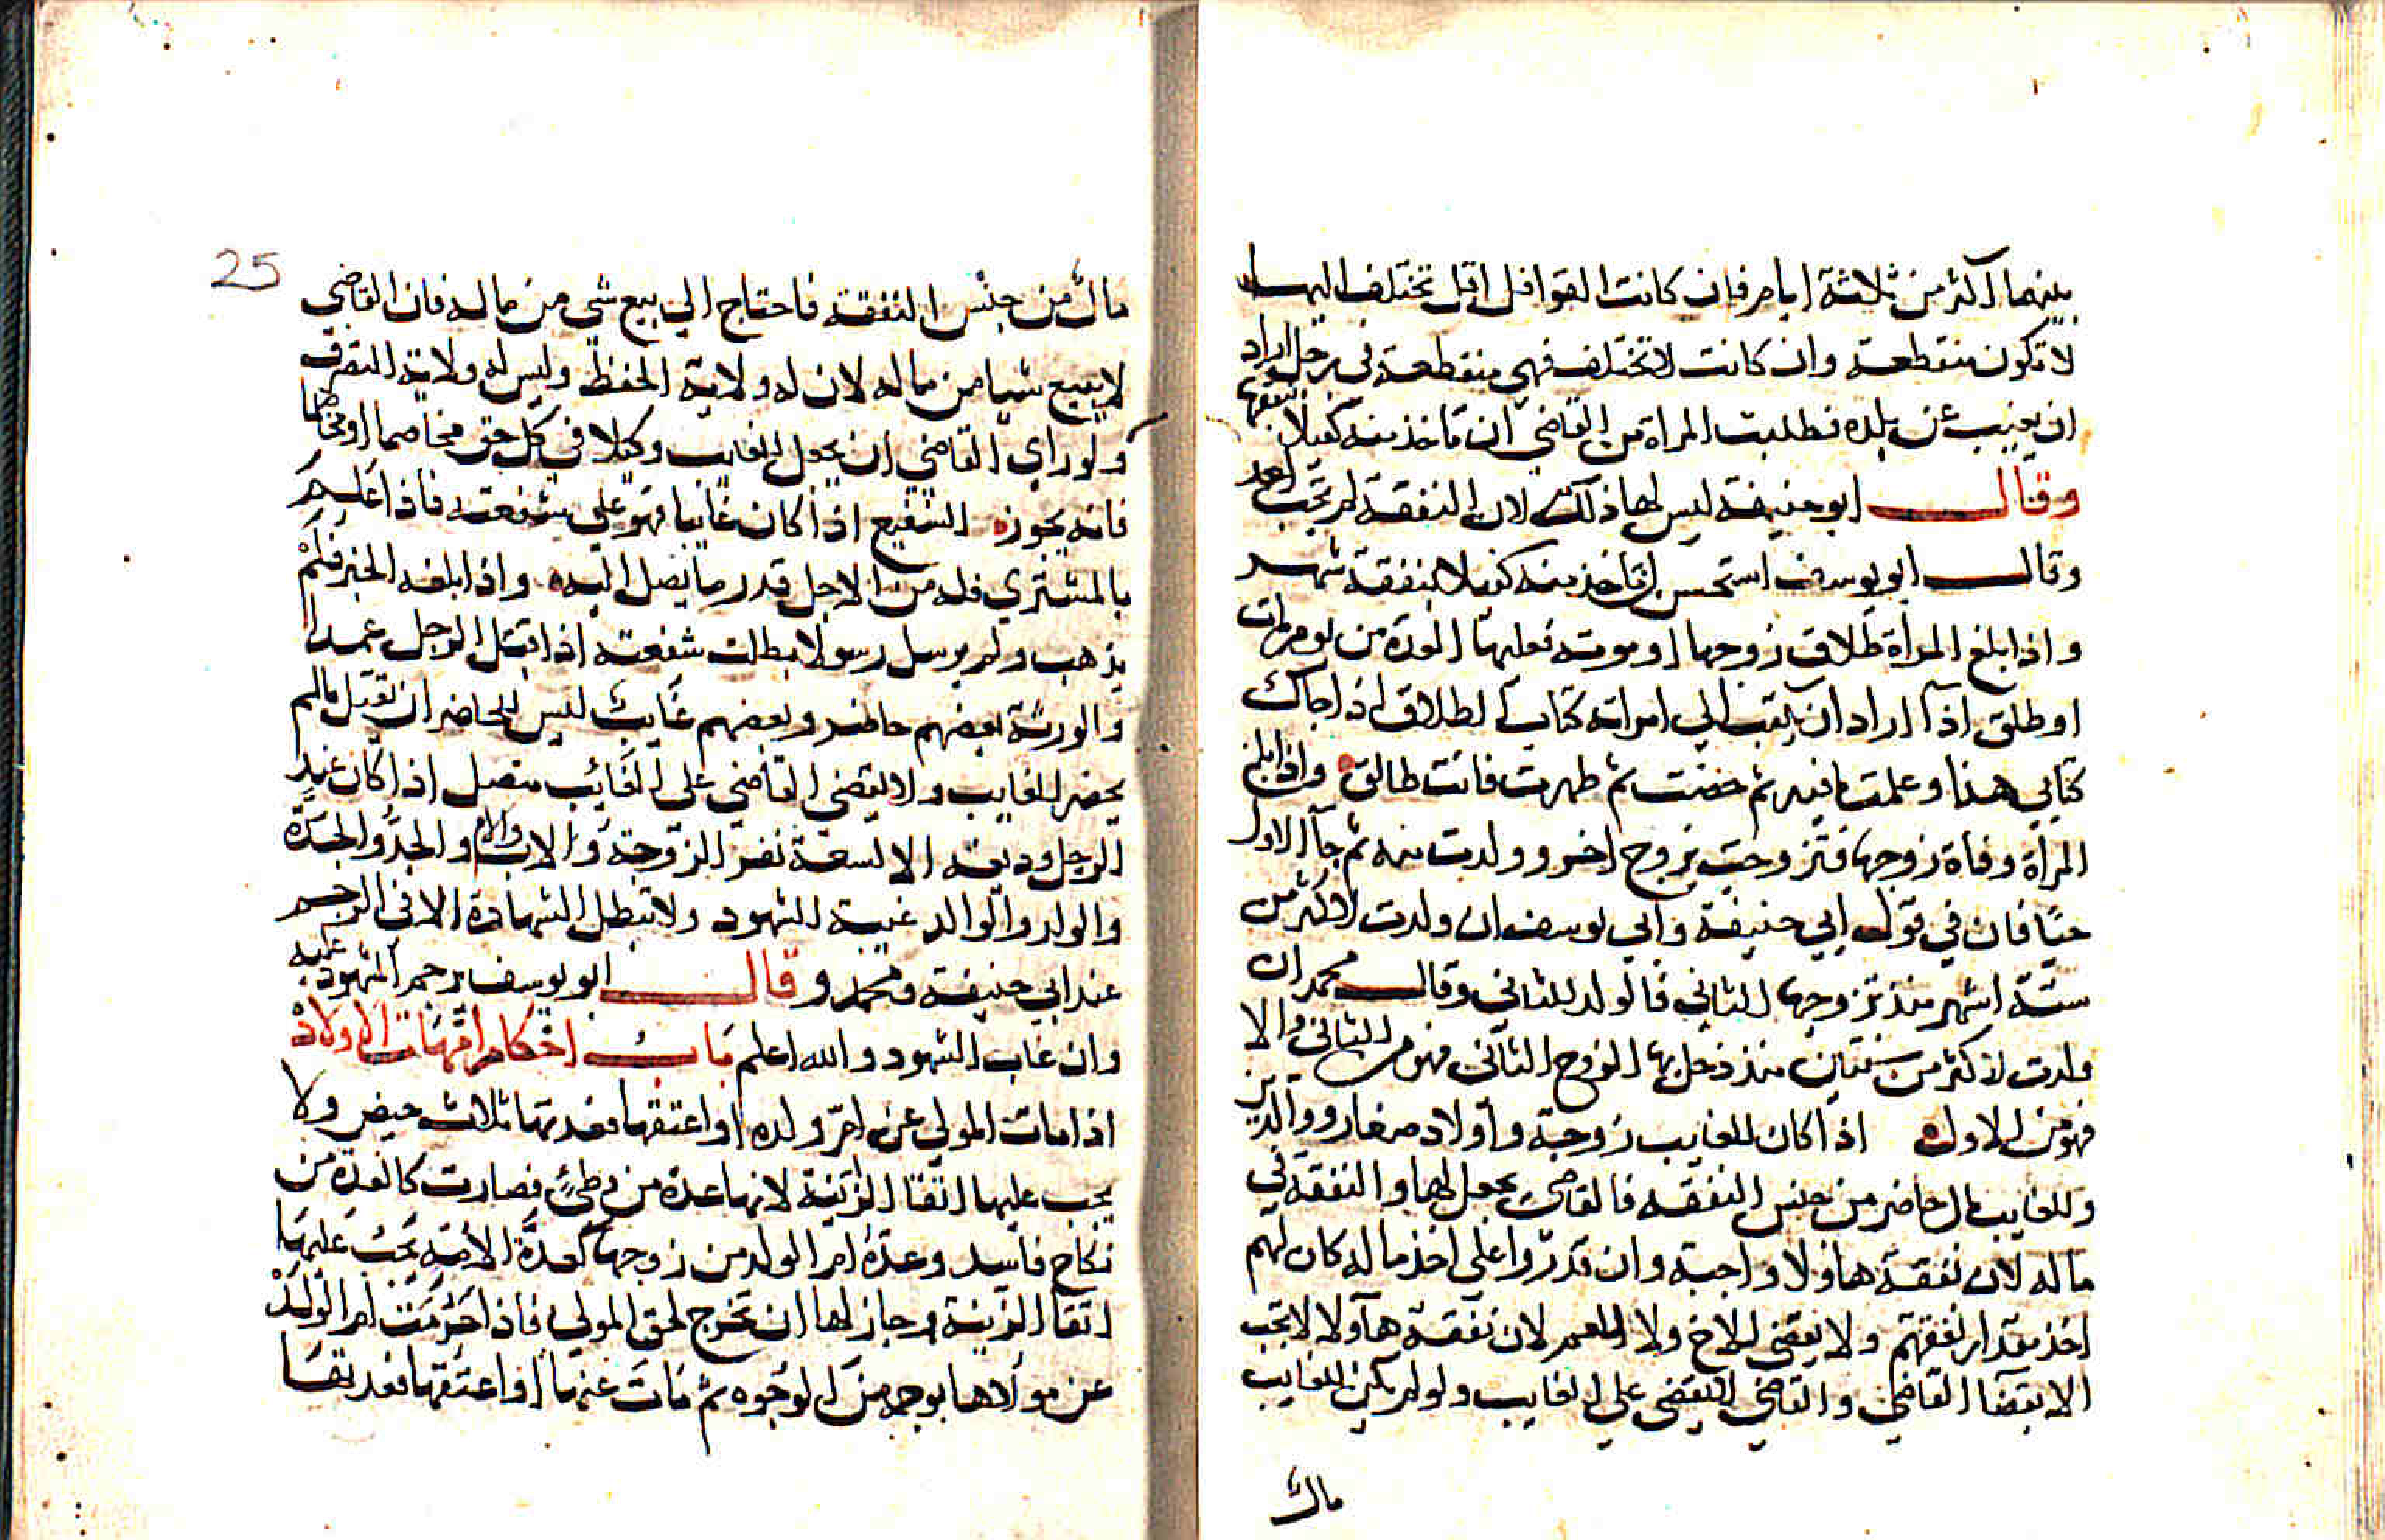 بينهما اكثر من ثلاثة ايام فان كانت القوافل اقل تختلف اليها
لا تكون منقطعة وان كانت لا تختلف فهي منقطعة في رجل اراد
ان يغيب عن بلده فطلبت المراة من القاضي ان تاخذ منه كفيلا بنفقتها
وقال ابو حنيفة ليس لها ذلك لان النفقة لم تجب بعد
وقال ابو يوسف استحسن ان تاخذ منه كفيلا بنفقة شهر
واذا بلغ المراة طلاق زوجها او موته فعليها العدة من يوم مات
او طلق اذا اراد ان يكتب الي امراته كتاب الطلاق اذا جاك
كتابي هذا وعلمت ما فيه ثم حضت ثم طهرت فانت طالق واذا بلغ
المراة وفاة زوجها فتزوجت بزوج اخر وولدت منه ثم جآ الاول
حيًا فان في قول ابي حنيفة وابي يوسف ان ولدت لاكثر من
ستة اشهر منذ تزوجها الثاني فالولد للثاني وقال محمد ان
ولدت لاكثر من سنتين منذ دخل بها الزوج الثاني فهو من الثاني والا
فهو من الاول اذا كان للغايب زوجة واولاد صغار ووالدين
وللغايب مال حاضر من جنس النفقة فالقاضي يجعل لها والنفقة في
ماله لان نفقة هاولا واجبة وان قدروا علي اخذ ماله كان لهم
اخذ مقدار نفقتهم ولا يقضي للاخ ولا للعم لان نفقة هآولا لا تجب
الا بقضآ القاضي والقاضي لا يقضي علي الغايب ولو لم يكن للغايب
مال
25
مالٌ من جنْس النفقة فاحتاج الي بيع شي من ماله فان القاضي
لا يبيع شيا من ماله لان له ولاية الحفظ وليس له ولاية التصرف
ولو راي القاضي ان يجعل للغايب وكيلا في كل حق مخاصما او مخاصما
فانه يجوز الشفيع اذا كان غايبا فهو علي شفعته فاذا علم
بالمشتري فله من الاجل قدر ما يصل اليه واذا بلغه الخبر فلم
يذهب ولم يرسل رسولا بطلت شفعته اذا قتل الرجل عمدا
والورثة بعضهم حاضر وبعضهم غايبٌ ليس للحاضر ان يقتل مالم
يحضر الغايب ولا يقضي القاضي علي الغائب متصل اذا كان عند
الرجل وديعة الا لسعة نفر الزوجة والاب والام والجدُّ والجدّة
والولد والوالد غيبة الشهود ولا تبطل الشهادة الا في الرجم
عند ابي حنيفة ومحمد وقال ابو يوسف يرجم المشهود عليه
وان غاب الشهود والله اعلم باب احْكام امّهَات الاولادْ
اذا مات المولي عن امّ ولده او اعتقها فعدتها ثلاث حيض ولا
يجب عليها اتقا الزّينة لانها عدة من وطئٍ فصارت كالعدة من
نكاح فاسد وعدّةُ ام الولد من زوجها كعدّة الامة يجب عليها
اتقا الزينة وجاز لها ان تخرج لحق المولي فاذا حَرُمَت ام الولدْ
عن مولاها بوجه من الوجُوه ثم مَات عنها او اعتقها فعدتها